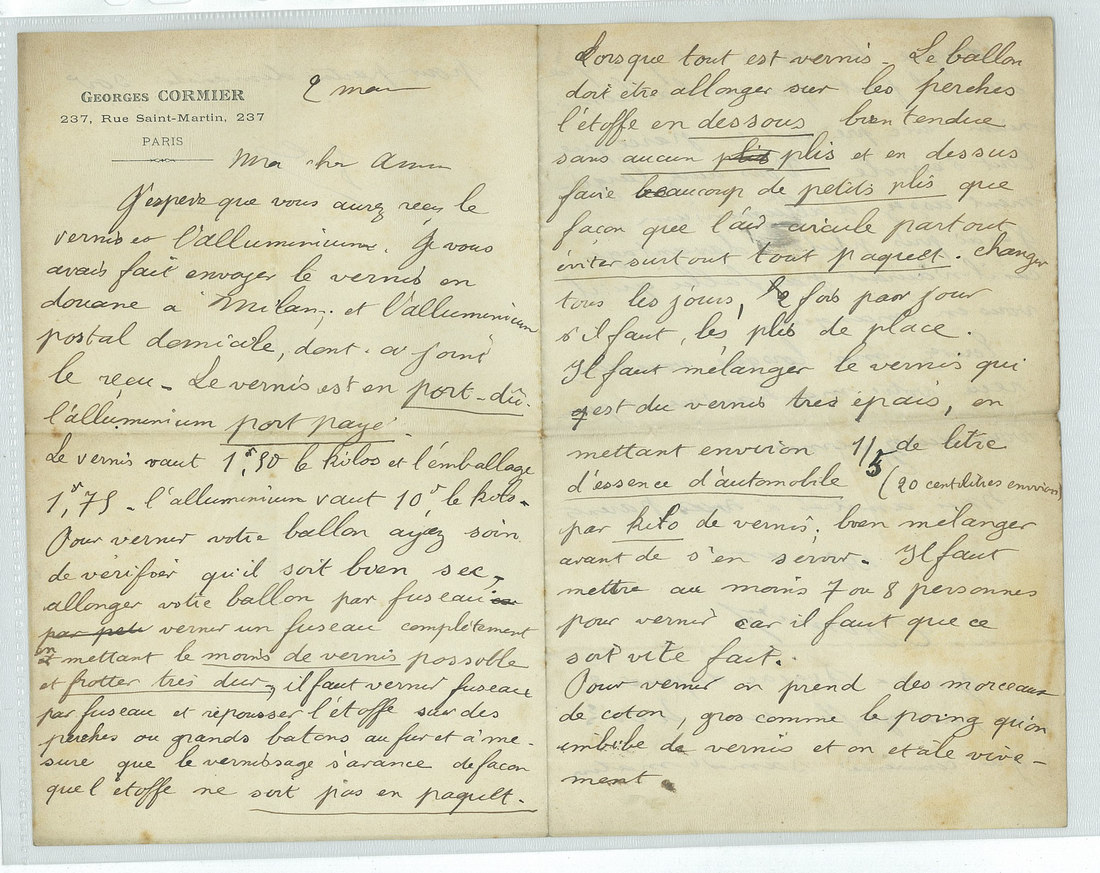 GEORGES CORMIER
237, Rue Saint-Martin, 237
PARIS
2 mai
Mon cher Ami
J'espère que vous aurez reçu le
vernis et l'alluminium. Je vous
avais fait envoyer le vernis en
douane à Milan, et l'alluminium
postal domicile, dont ci joint
le reçu - Le vernis est en port-dû.
l'alluminium port payé
Le vernis vaut 1f,90 le kilos et l'emballage
1f,75 - l'alluminium vaut 10f le kilo.
Pour vernir votre ballon ayez soin
de vérifier qu'il soit bien sec,
allonger votre ballon par fuseau
par peti vernir un fuseau complètement
en mettant le moins de vernis possible
et frotter très dur, il faut vernir fuseau
par fuseau et repousser l'étoffe sur des
perches ou grands batons au fur et à me-
sure que le vernissage s'avance de façon
que l'étoffe ne soit pas en paquet.
Lorsque tout est vernis - Le ballon
doit être allonger sur les perches
l'étoffe en dessous bien tendue
sans aucun plis plis et en dessus
faire beaucoup de petits plis que
façon que l'air circule partout
éviter surtout tout paquet. changer
tous les jours, 2 fois par jour
s'il faut, les plis de place.
Il faut mélanger le vernis qui
est du vernis très épais, en
mettant environ 1/5 de litre
d'essence d'automobile (20 centilitres environ)
par kilo de vernis, bien mélanger
avant de s'en servir. Il faut
mettre au moins 7 ou 8 personnes
pour vernir car il faut que ce
soit vite fait.
Pour vernir on prend des morceaux
de coton, gros comme le poing qu'on
imbibe de vernis et on étale vive-
ment